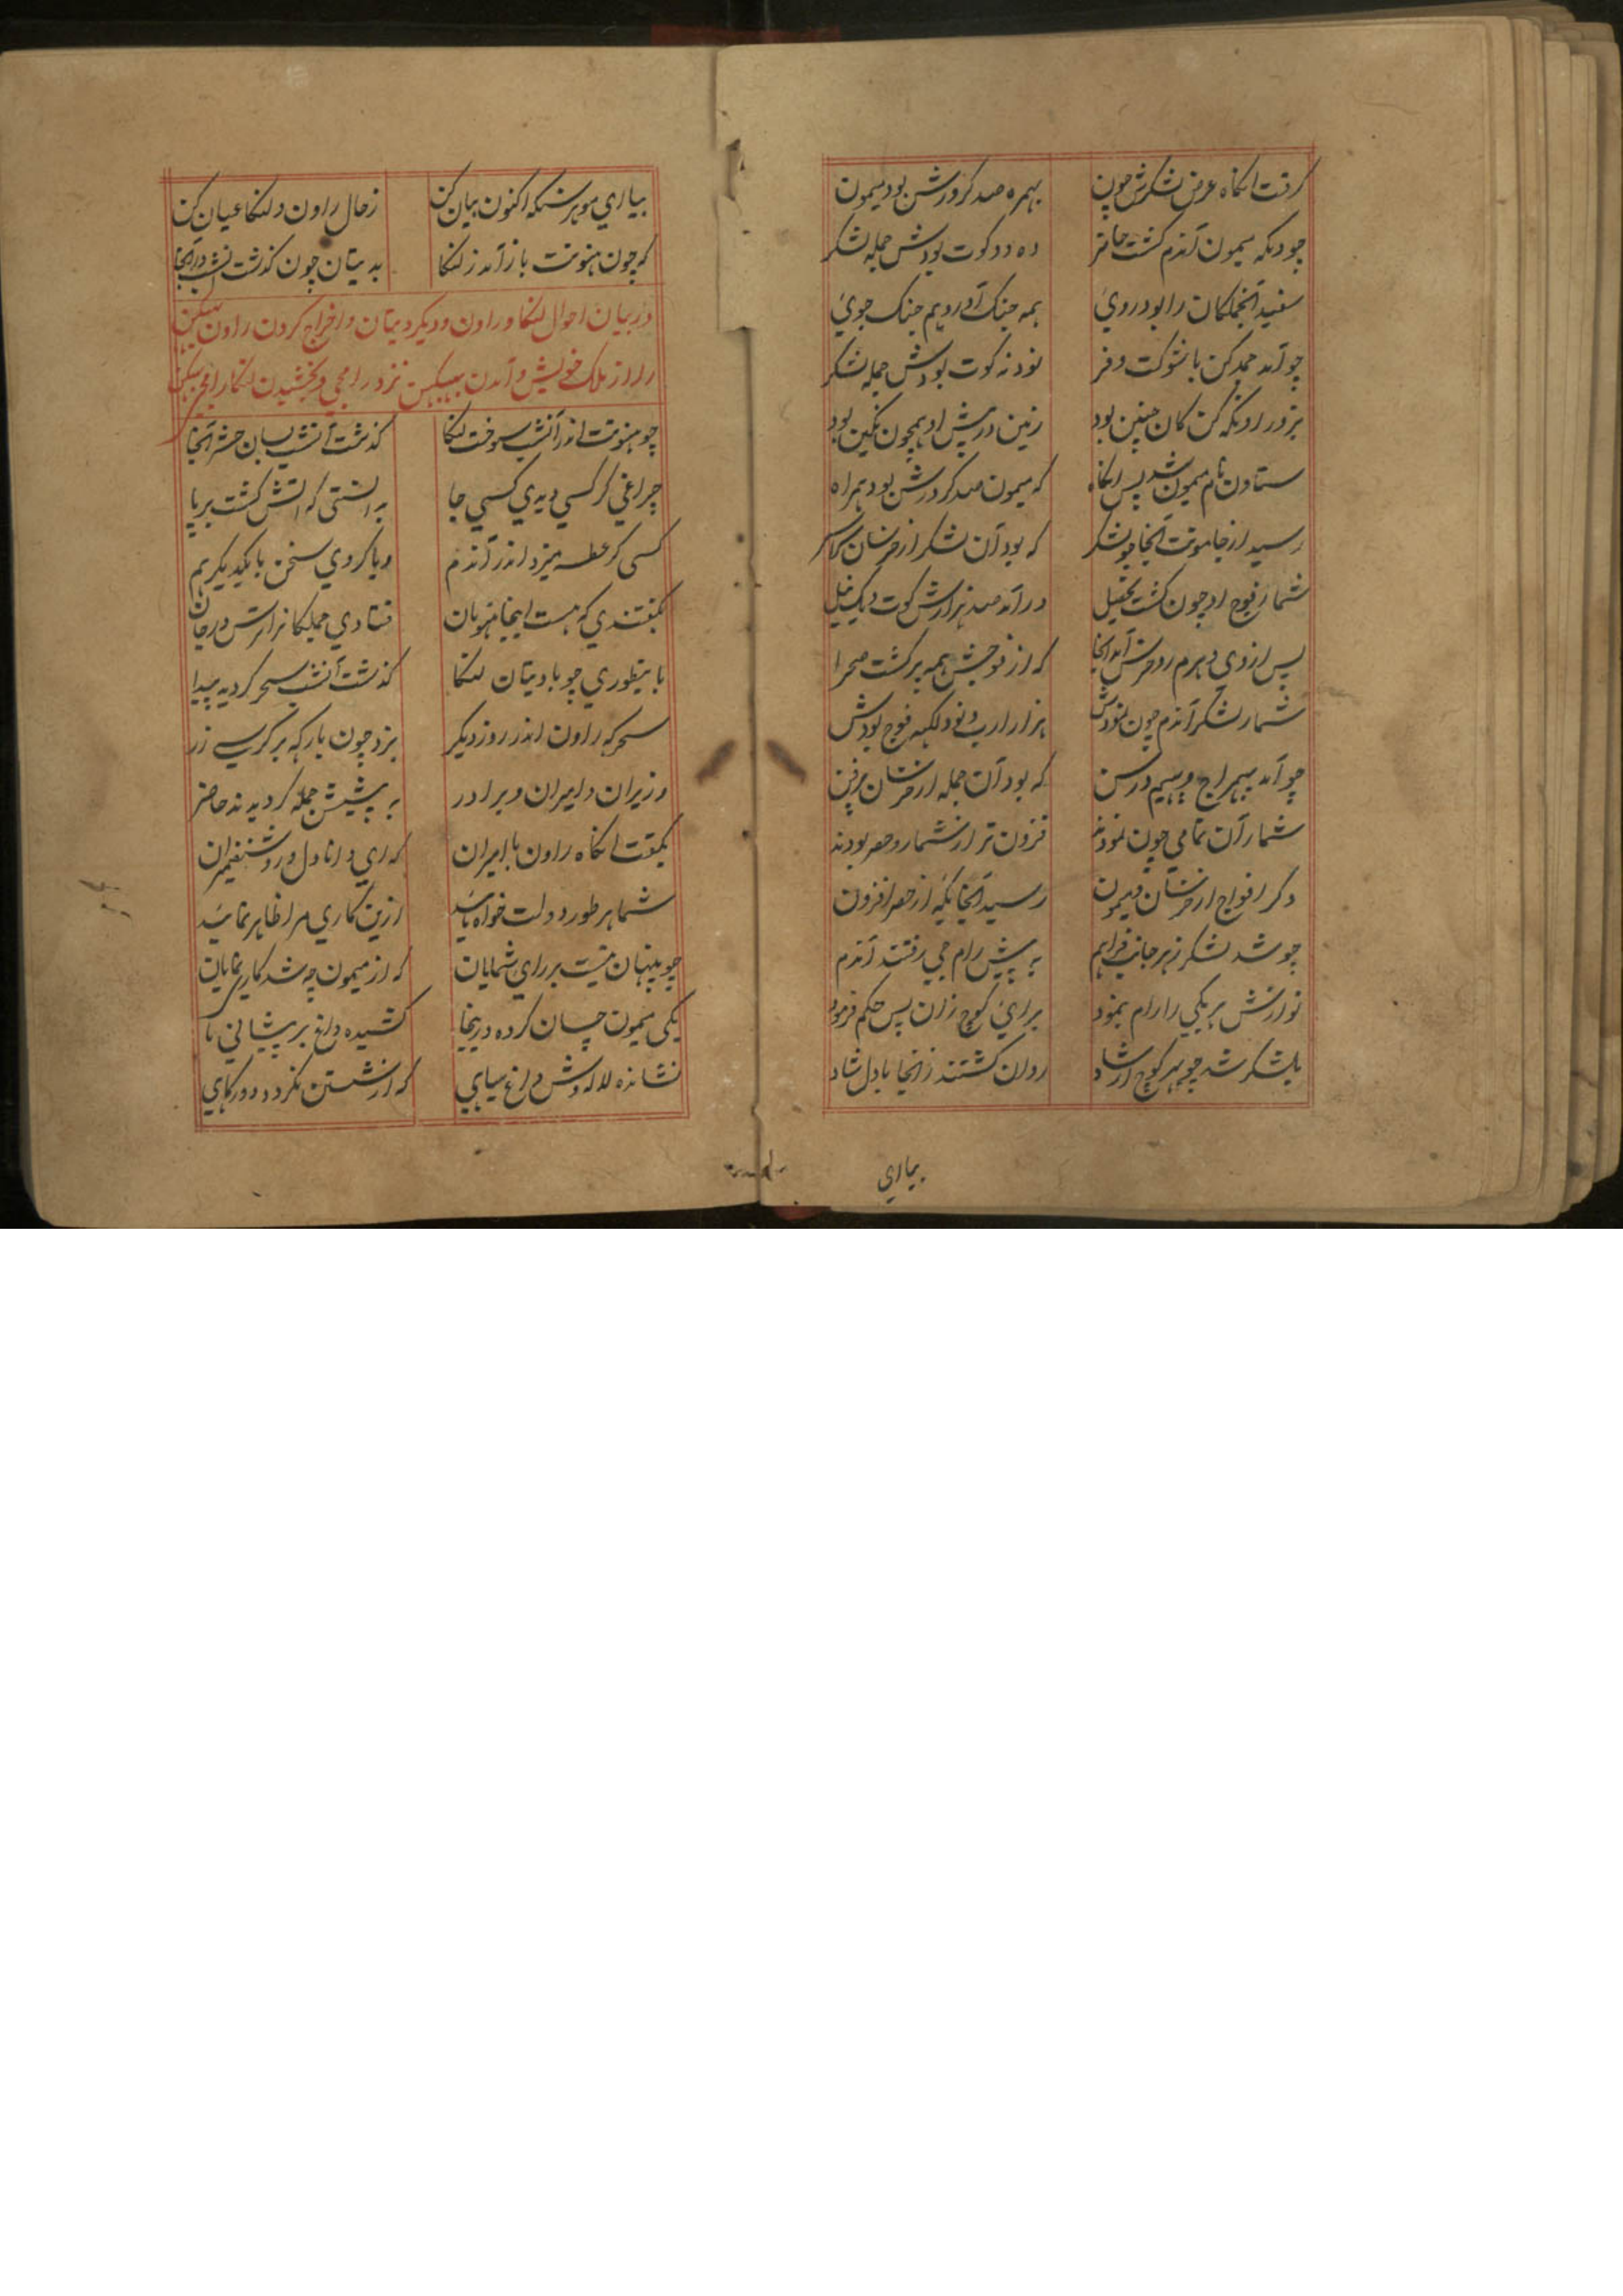 گرفت انگاه عرض لشکرش چون بهمره صد کرورش بود میمون
چو دیگه میمون آندم گشت حاضر ده دو کوت بودش جمله لشکر
سفید آنجملکان را بود روی همه جنگ آور و هم جنگ جوی
چو آمد کن با شوکت و فر نود نه کوت بودش جمله لشکر
بزور کن کان چنین بود زمین در پیش او همچون نگین بود
ستاون نام میمون شد پس انگاه که میمون صد کرورش بود همراه
رسید از جامونت آنجا چو لشکر که بود آن لشکر از خرسان سراسر
شمار فوج او چون گشت درآمد صد هزارش کوت
پس از وی دهرم آمد آنجا که از فوجش همه پر گشت صحرا
شمار لشکر آندم چون نمودش هزار ارب و نود لکهه فوج بودش
چو آمد که بود آن جمله از خرسان پرفن
شمار آن تمامی چون نمودند فزون تر از شمار و حصر بودند
دگر افواج از خرسان و میمون رسید آنجایگه از حصر افزون
چو شد لشکر ز هر جانب فراهم به پیش رام جی رفتند آندم
نوازش هر یکی را رام بنمود برای کوچ زان پس حکم فرمود
بلشکر شد چو بهر کوچ ارشاد روان گشتند زانجا با دل شاد
بیاری
بیاری موهر سنگه اکنون بیان کن ز حال راون و لنکا عیان کن
که چون هنونت باز آمد ز لنکا بدیتان چون گذشت انشب در آنجا
در بیان احوال لنکا و راون و دیگر دیتان و اخراج کردن راون ببیکهن
را از ملک خویش و آمدن ببیکهن نزد رامجی و بخشیدن لنکا رامجی ببیکهن
چو هنونت اندر آنشب سوخت لنکا گذشت آنشب بسان حشر آنجا
چراغی گر کسی دیدی کسی جا بدانستی که آتش گشت برپا
کسی گر عطسه میزد اندر آندم و یا کردی سخن با یکدیگر هم
بگفتندی که هست اینجا هنومان فتادی جملکانرا لرزش در جان
باینطوری چو با دیتان لنکا گذشت آنشب سحر گردید پیدا
سحرگه راون اندر روز دیگر بزد چون بارگه بر کرسی زر
وزیران و امیران و برادر به پیشش جمله گردیدند حاضر
بگفت انگاه راون با امیران که ای دانا دل و روشنضمیران
شما هر طور دولت خواه باشید ازین کاری مرا ظاهر نمائید
چو پنهان نیست بر رای شمایان که از میمون چه شد کار نمایان
یکی میمون چسان کرده در اینجا کشیده داغ بر پیشانی ما
نشانده لاله وش داغ سیاهی که از شستن نگردد دور گاهی